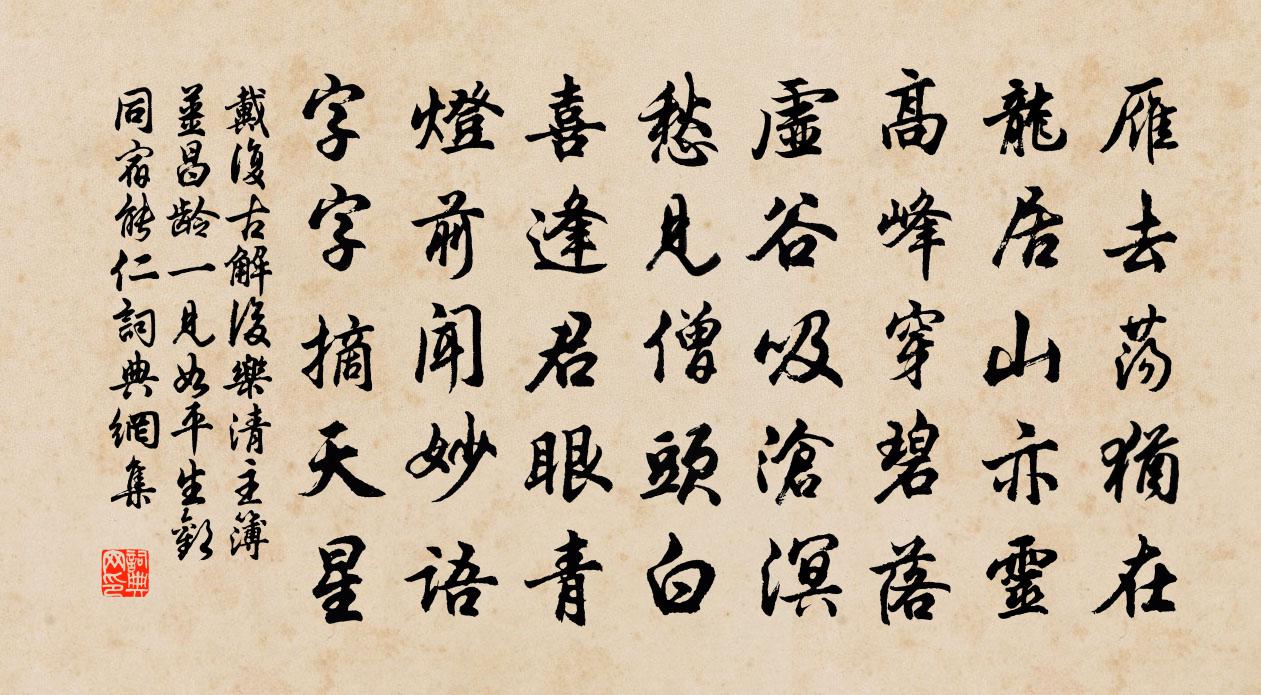 雁去蕩猶在
龍居山亦靈
高峰穿碧落
虛谷吸滄溟
愁見僧頭白
喜逢君眼青
燈前聞妙語
字字摘天星
戴復古解后樂清主簿
薑昌齡一見如平生歡
同宿能仁詞典網集
詞典網印